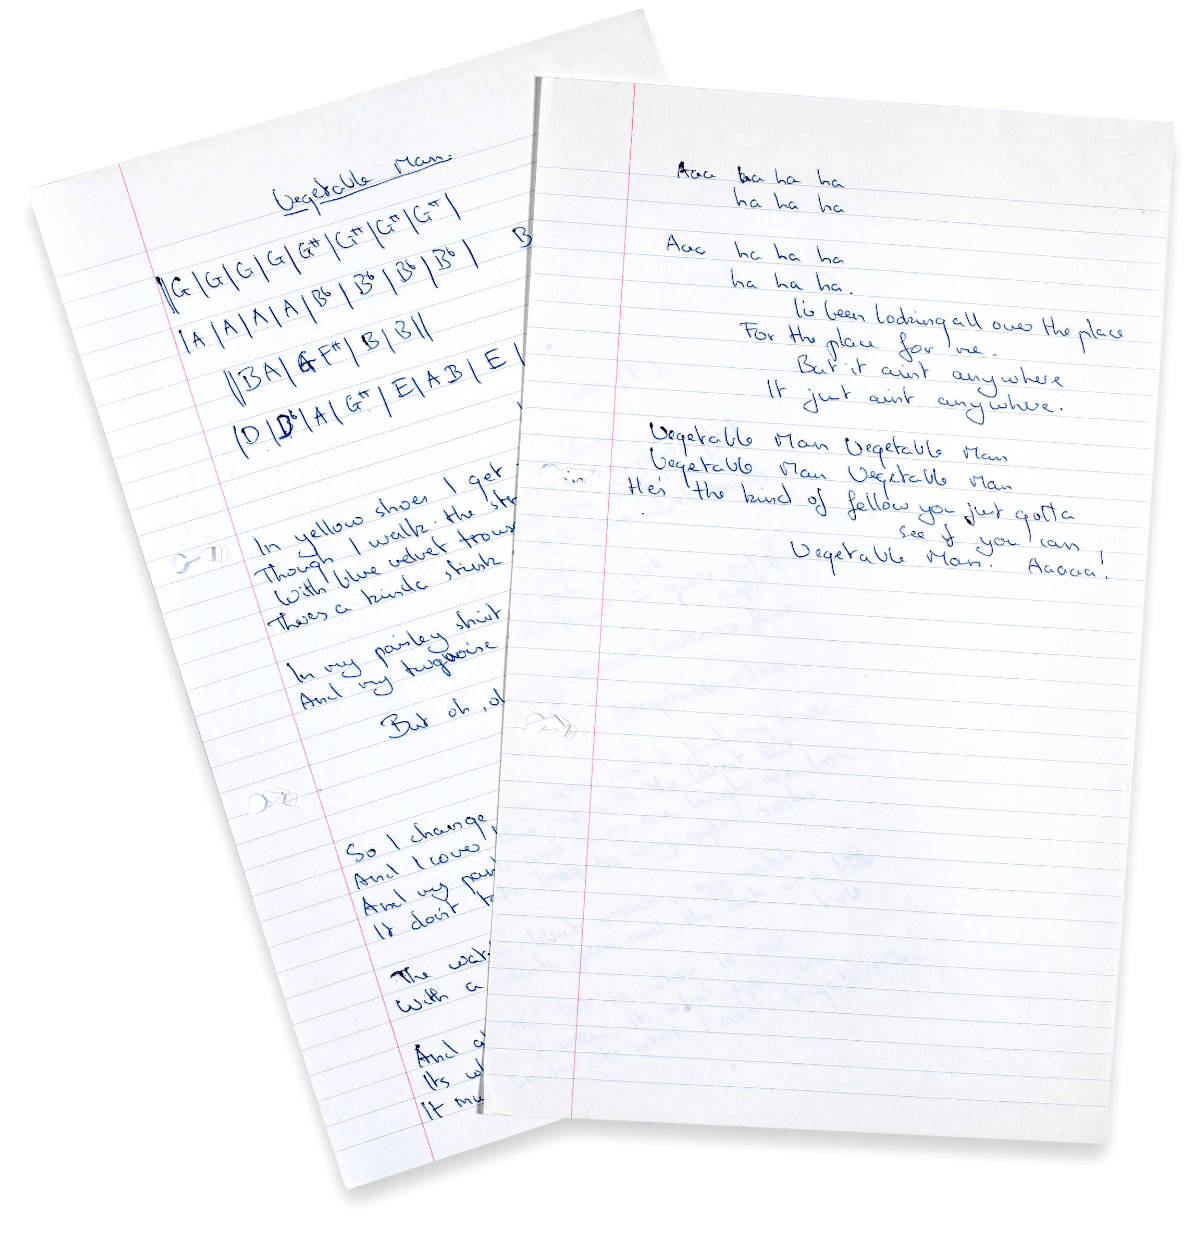 Vegetable Man.
||G|G|G|G|G#|G#|G#|G#|
|A|A|A|A|Bb|Bb|Bb|Bb| B
||BA|GF#|B|B||
|D|Db|A|G#|E|AB|E|
In yellow shoes I get
Though I walk the str
With blue velvet trous
Theres a kinda stink
In my paisley shirt
And my turquoise
But oh, oh
So I change
And I cover
And my pais
It don't
The wat
With a
And al
Its wh
It mu
Aaa ha ha ha
ha ha ha
Aaa ha ha ha
ha ha ha.
I'v been looking all over the place
For the place for me.
But it aint anywhere
It just aint anywhere.
Vegetable Man Vegetable Man
Vegetable Man Vegetable Man
He's the kind of fellow you just gotta
see if you can,
Vegetable Man. Aaaaa!